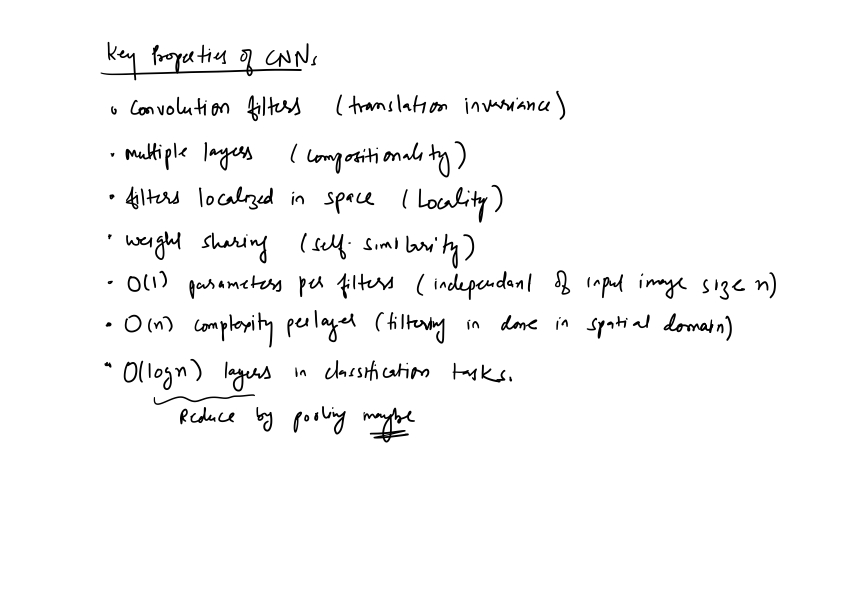 Key Properties of CNNs
• Convolution filters (translation invariance)
• multiple layers (compositionality)
• filters localized in space (Locality)
• weight sharing (self-similarity)
• O(1) parameters per filters (independant of input image size n)
• O(n) complexity per layer (filtering in done in spatial domain)
• O(log n) layers in classification tasks.
Reduce by pooling maybe